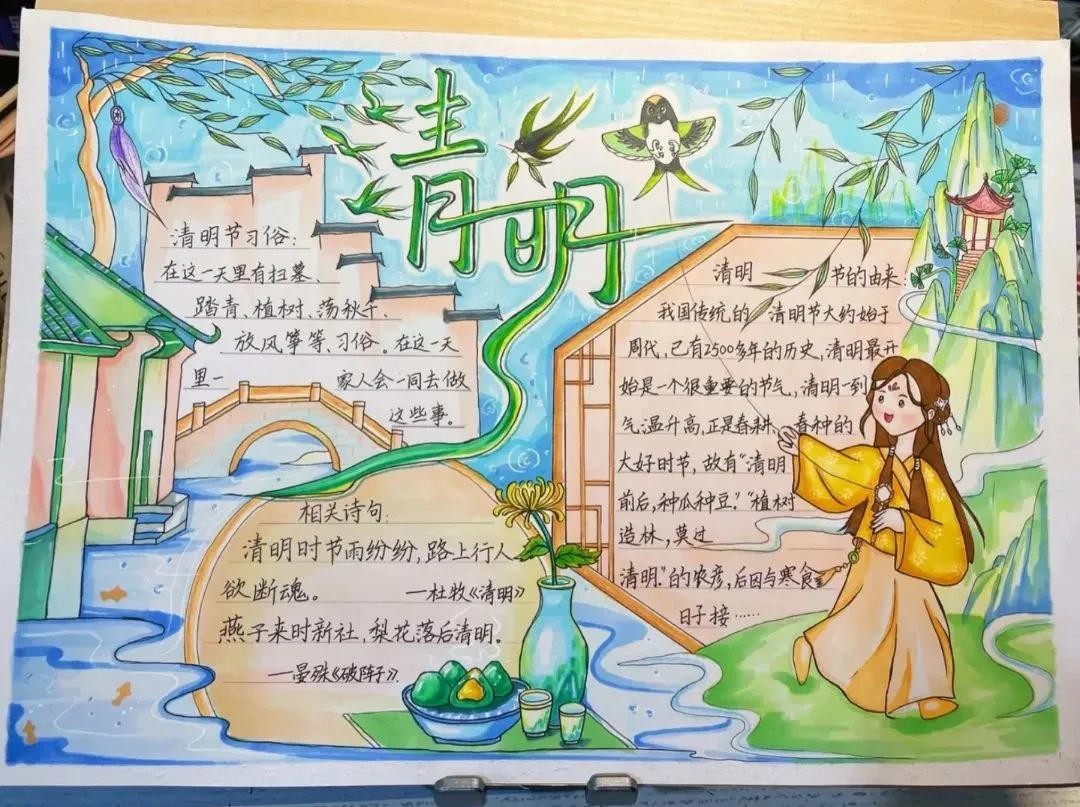 清明
清明节习俗：
在这一天里有扫墓、
踏青、植树、荡秋千、
放风筝等、习俗。在这一天
里一 家人会一同去做
这些事。
清明 节的由来：
我国传统的 清明节大约始于
周代，已有2500多年的历史，清明最开
始是一个很重要的节气，清明一到
气温升高，正是春耕、春种的
大好时节，故有“清明
前后，种瓜种豆”。“植树
造林，莫过
清明。”的农彦，后因与寒食
日子接……
相关诗句：
清明时节雨纷纷，路上行人
欲断魂。 —杜牧《清明》
燕子来时新社，梨花落后清明。
—晏殊《破阵子》